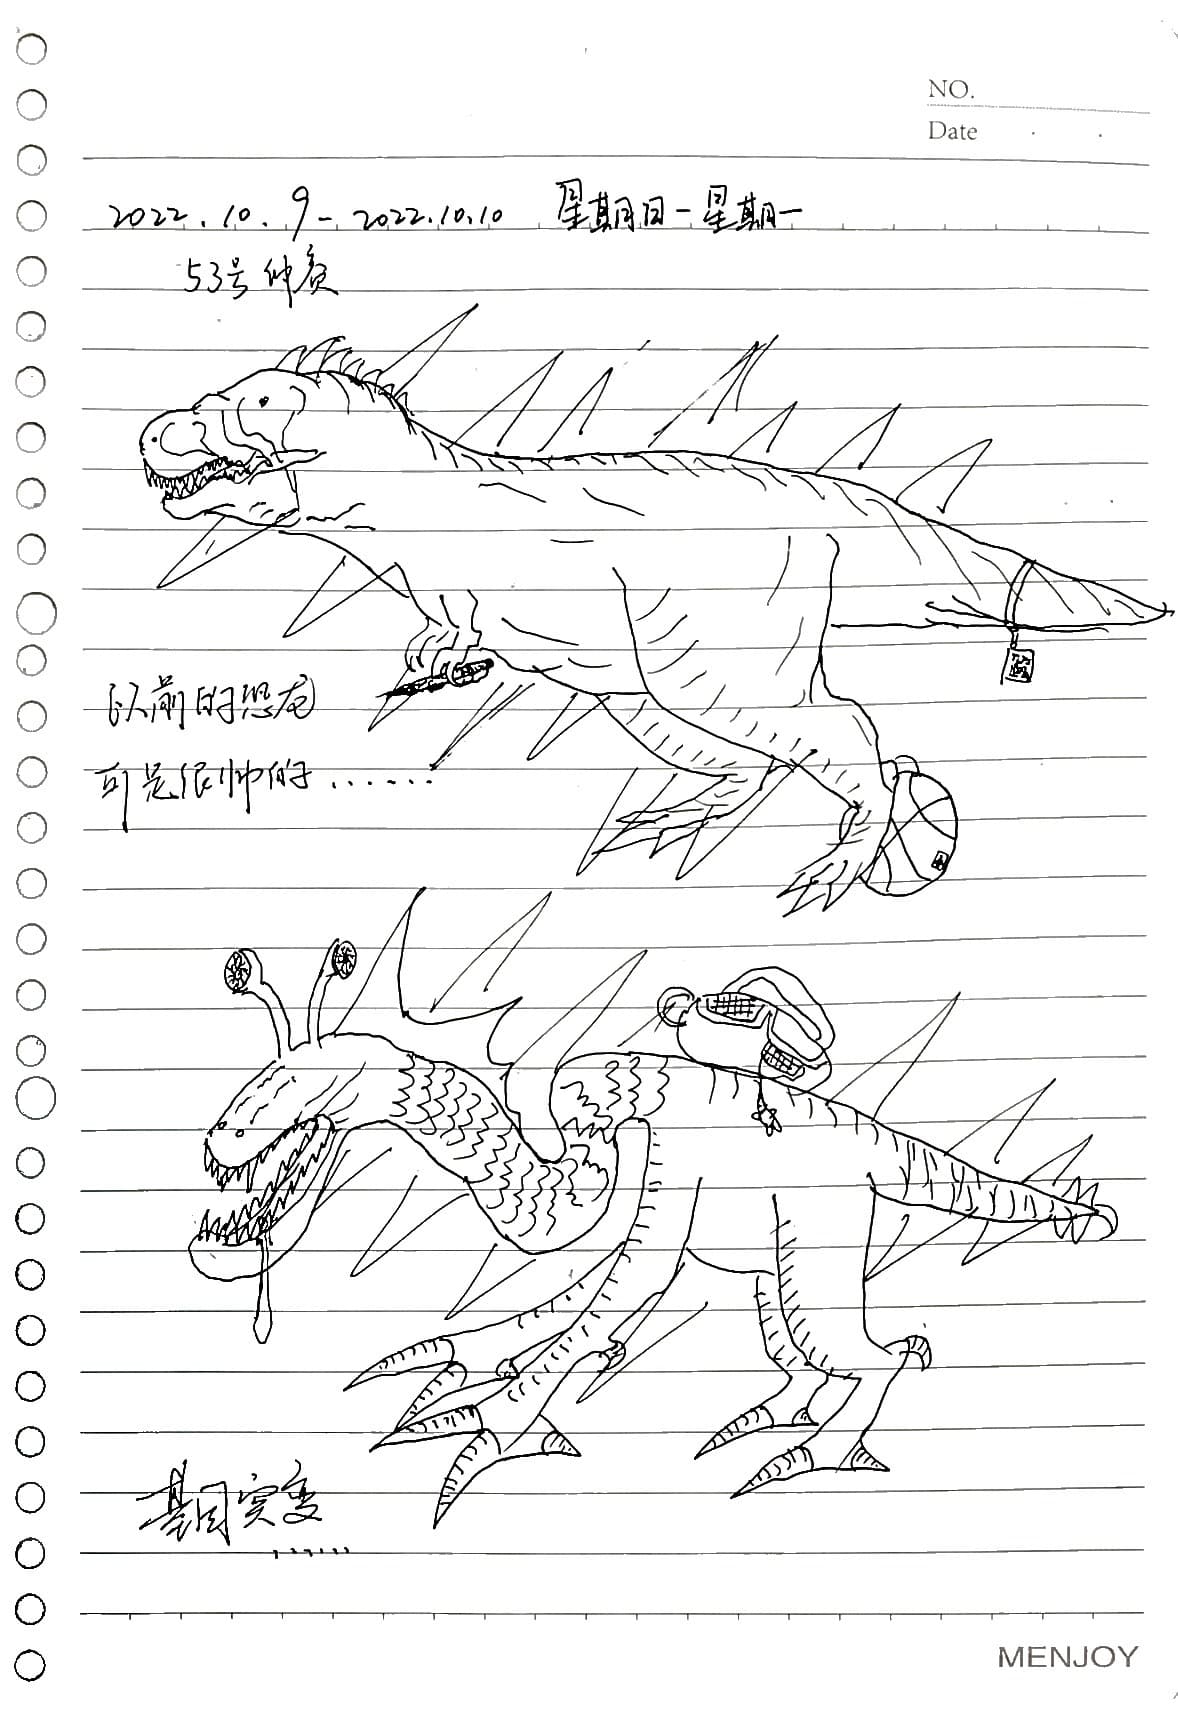 NO.
Date
2022.10.9-2022.10.10 星期日-星期一
53号
以前的恐龙
可是很帅的......
基因突变
......
MENJOY